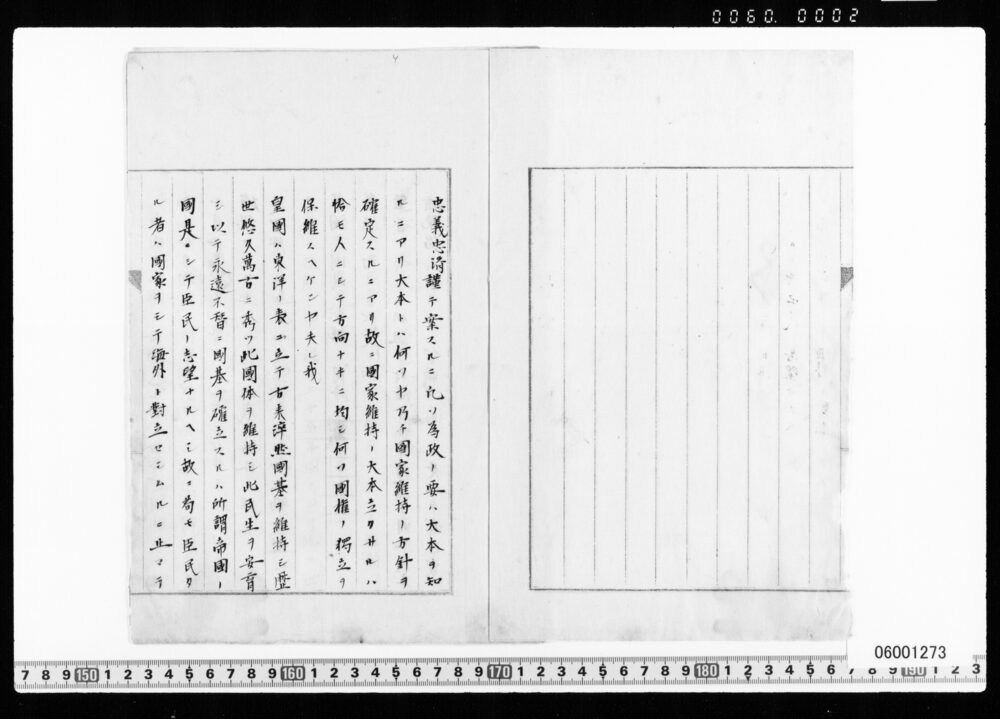 0060. 0002
忠義忠済謹テ案スルニ凡ソ為政ノ要ハ大本ヲ知
ルニアリ大本トハ何ソヤ乃チ國家維持ノ方針ヲ
確定スルニアリ故ニ國家維持ノ大本立タサルハ
恰モ人ニシテ方向ナキニ均シ何ソ國権ノ獨立ヲ
保維スヘケンヤ夫レ我
皇國ハ東洋ノ表ニ立テ古来淬然國基ヲ維持シ歴
世悠久萬古ニ秀ツ此國体ヲ維持シ此民生ヲ安育
シ以テ永遠不替ニ國基ヲ確立スルハ所謂帝國ノ
國是ニシテ臣民ノ志望ナルヘシ故ニ苟モ臣民タ
ル者ハ國家ヲシテ海外ト對立セシムルニ止マテ
06001273
7 8 9 150 1 2 3 4 5 6 7 8 9 160 1 2 3 4 5 6 7 8 9 170 1 2 3 4 5 6 7 8 9 180 1 2 3 4 5 6 7 8 9 190 1 2 3